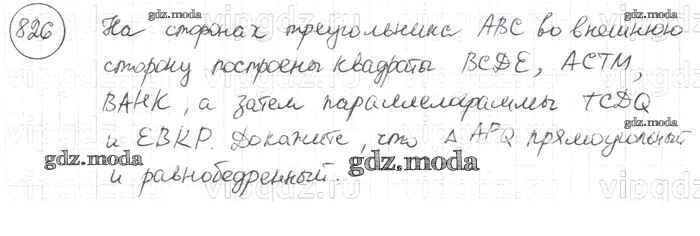 826 На сторонах треугольника ABC во внешнюю
сторону построены квадраты BCDE, ACTM,
BAHK, а затем параллелограммы TCDQ
и EBKP. Докажите, что △ APQ прямоугольный
и равнобедренный.
gdz.moda
gdz.moda
gdz.moda
gdz.moda
gdz.moda
gdz.moda
gdz.moda
gdz.moda